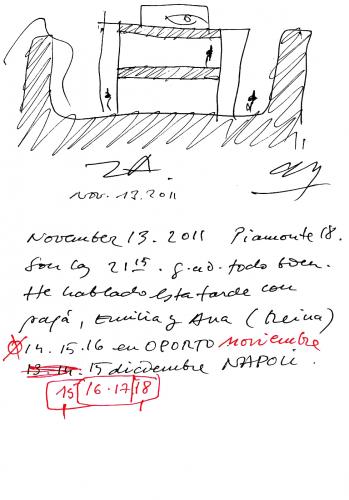 ZA.
NOV. 13.2011
November 13. 2011 Piamonte 18.
Son las 21 15. g.a.d. todo bien.
He hablado esta tarde con
papá, Emilia y Ana (Reina)
14. 15. 16 en OPORTO noviembre
13. 14. 15 diciembre NAPOLI.
15 16 · 17 18